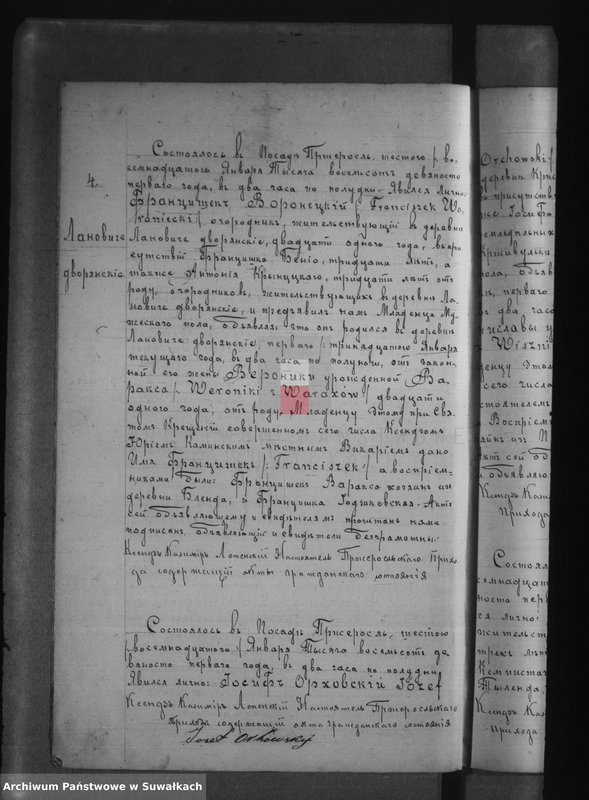 4.
Лановиче
дворянскіе
Состоялось въ Посадѣ Пржеросль, шестого / во-
семнадцатого Января Тысяча восемьсотъ девяносто
перваго года, въ два часа по полудни. Явился лично:
Францишекъ Воронецкій /: Franciszek Wo-
roniecki :/ огородникъ, жительствующій въ деревни
Лановиче дворянскіе, двадцати одного года, въ при-
сутствіи Францишка Бенѣо, тридцати лѣтъ, а
также Антонія Крыницкаго, тридцати лѣтъ отъ
роду, огородниковъ, жительствующихъ въ деревни Ла-
новиче дворянскіе, и предъявилъ намъ Младенца Му-
жескаго пола, объявляя: что онъ родился въ деревни
Лановиче дворянскіе, перваго /: тринадцатого Января
текущаго года, въ два часа по полуночи, отъ закон-
ной его жены Вероники урожденной Ва-
ракса /. Weroniki z Waraxów / двадцати
одного года, отъ роду. Младенцу Этому при Свя-
томъ Крещеніи совершенномъ сего числа Ксендзомъ
Юріемъ Каминскимъ мѣстнымъ Викаріемъ дано
Имя Францишекъ /: Franciszek :/ а воспріем-
никами были: Францишекъ Варакса хозяинъ изъ
деревни Бленда, и Францишка Годзиковская. Актъ
сей объявляющему и свидѣтелямъ прочитанъ нами
подписанъ, объявляющій и свидѣтели безграмотны.
Ксендзъ Казимѣръ Лопенскій Настоятель Пржерослскаго Прихо-
да содержащій акты гражданскаго состоянія
Состоялось въ Посадѣ Пржеросль, шестого
/ восемнадцатого / Января Тысяча восемьсотъ де-
вяносто перваго года, въ два часа по полудни
Явился лично: Іосифъ Орховскій Józef
Ксендзъ Казимѣръ Лопенскій Настоятель Пржерослскаго
Прихода содержащій акта гражданскаго состоянія
Józef Orchowski
Orchowski
деревни
присутств
Іосифа
объяв
перваго
два часа
сего числа
Ксендзъ
Прихода
Состоял
семнадцат
лично:
жительст
Ксендзъ Каз
Прихода
Archiwum Państwowe w Suwałkach